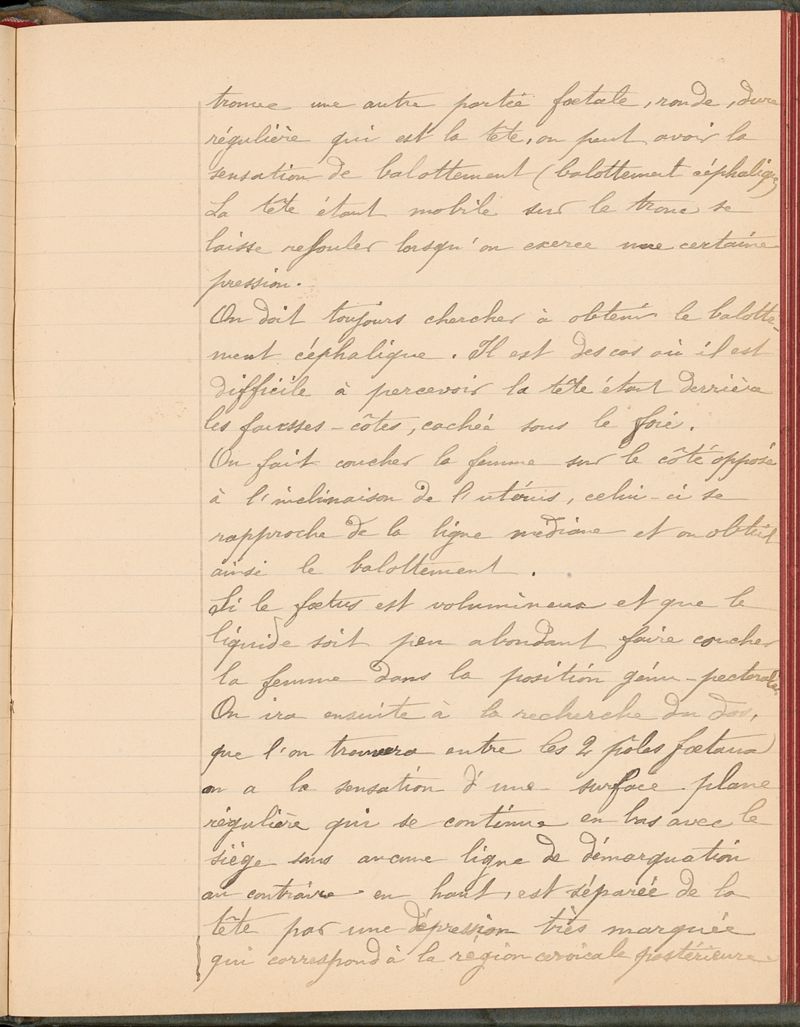 trouve une autre partie fœtale, ronde, dure
régulière qui est la tête, on peut avoir la
sensation de balottement (balottement céphalique)
La tête étant mobile sur le tronc se
laisse refouler lorsqu'on exerce une certaine
pression.
On doit toujours chercher à obtenir le balotte-
ment céphalique. Il est des cas où il est
difficile à percevoir la tête étant derrière
les fausses-côtes, cachée sous le foie.
On fait coucher la femme sur le côté opposé
à l'inclinaison de l'utérus, celui-ci se
rapproche de la ligne médiane et on obtient
ainsi le balottement.
Si le fœtus est volumineux et que le
liquide soit peu abondant faire coucher
la femme dans la position génu-pectorale
On ira ensuite à la recherche du dos,
que l'on trouvera entre les 2 pôles fœtaux
on a la sensation d'une surface plane
régulière qui se continue en bas avec le
siège sans aucune ligne de démarquation
au contraire en haut, est séparée de la
tête par une dépression très marquée
qui correspond à la région cervicale postérieure